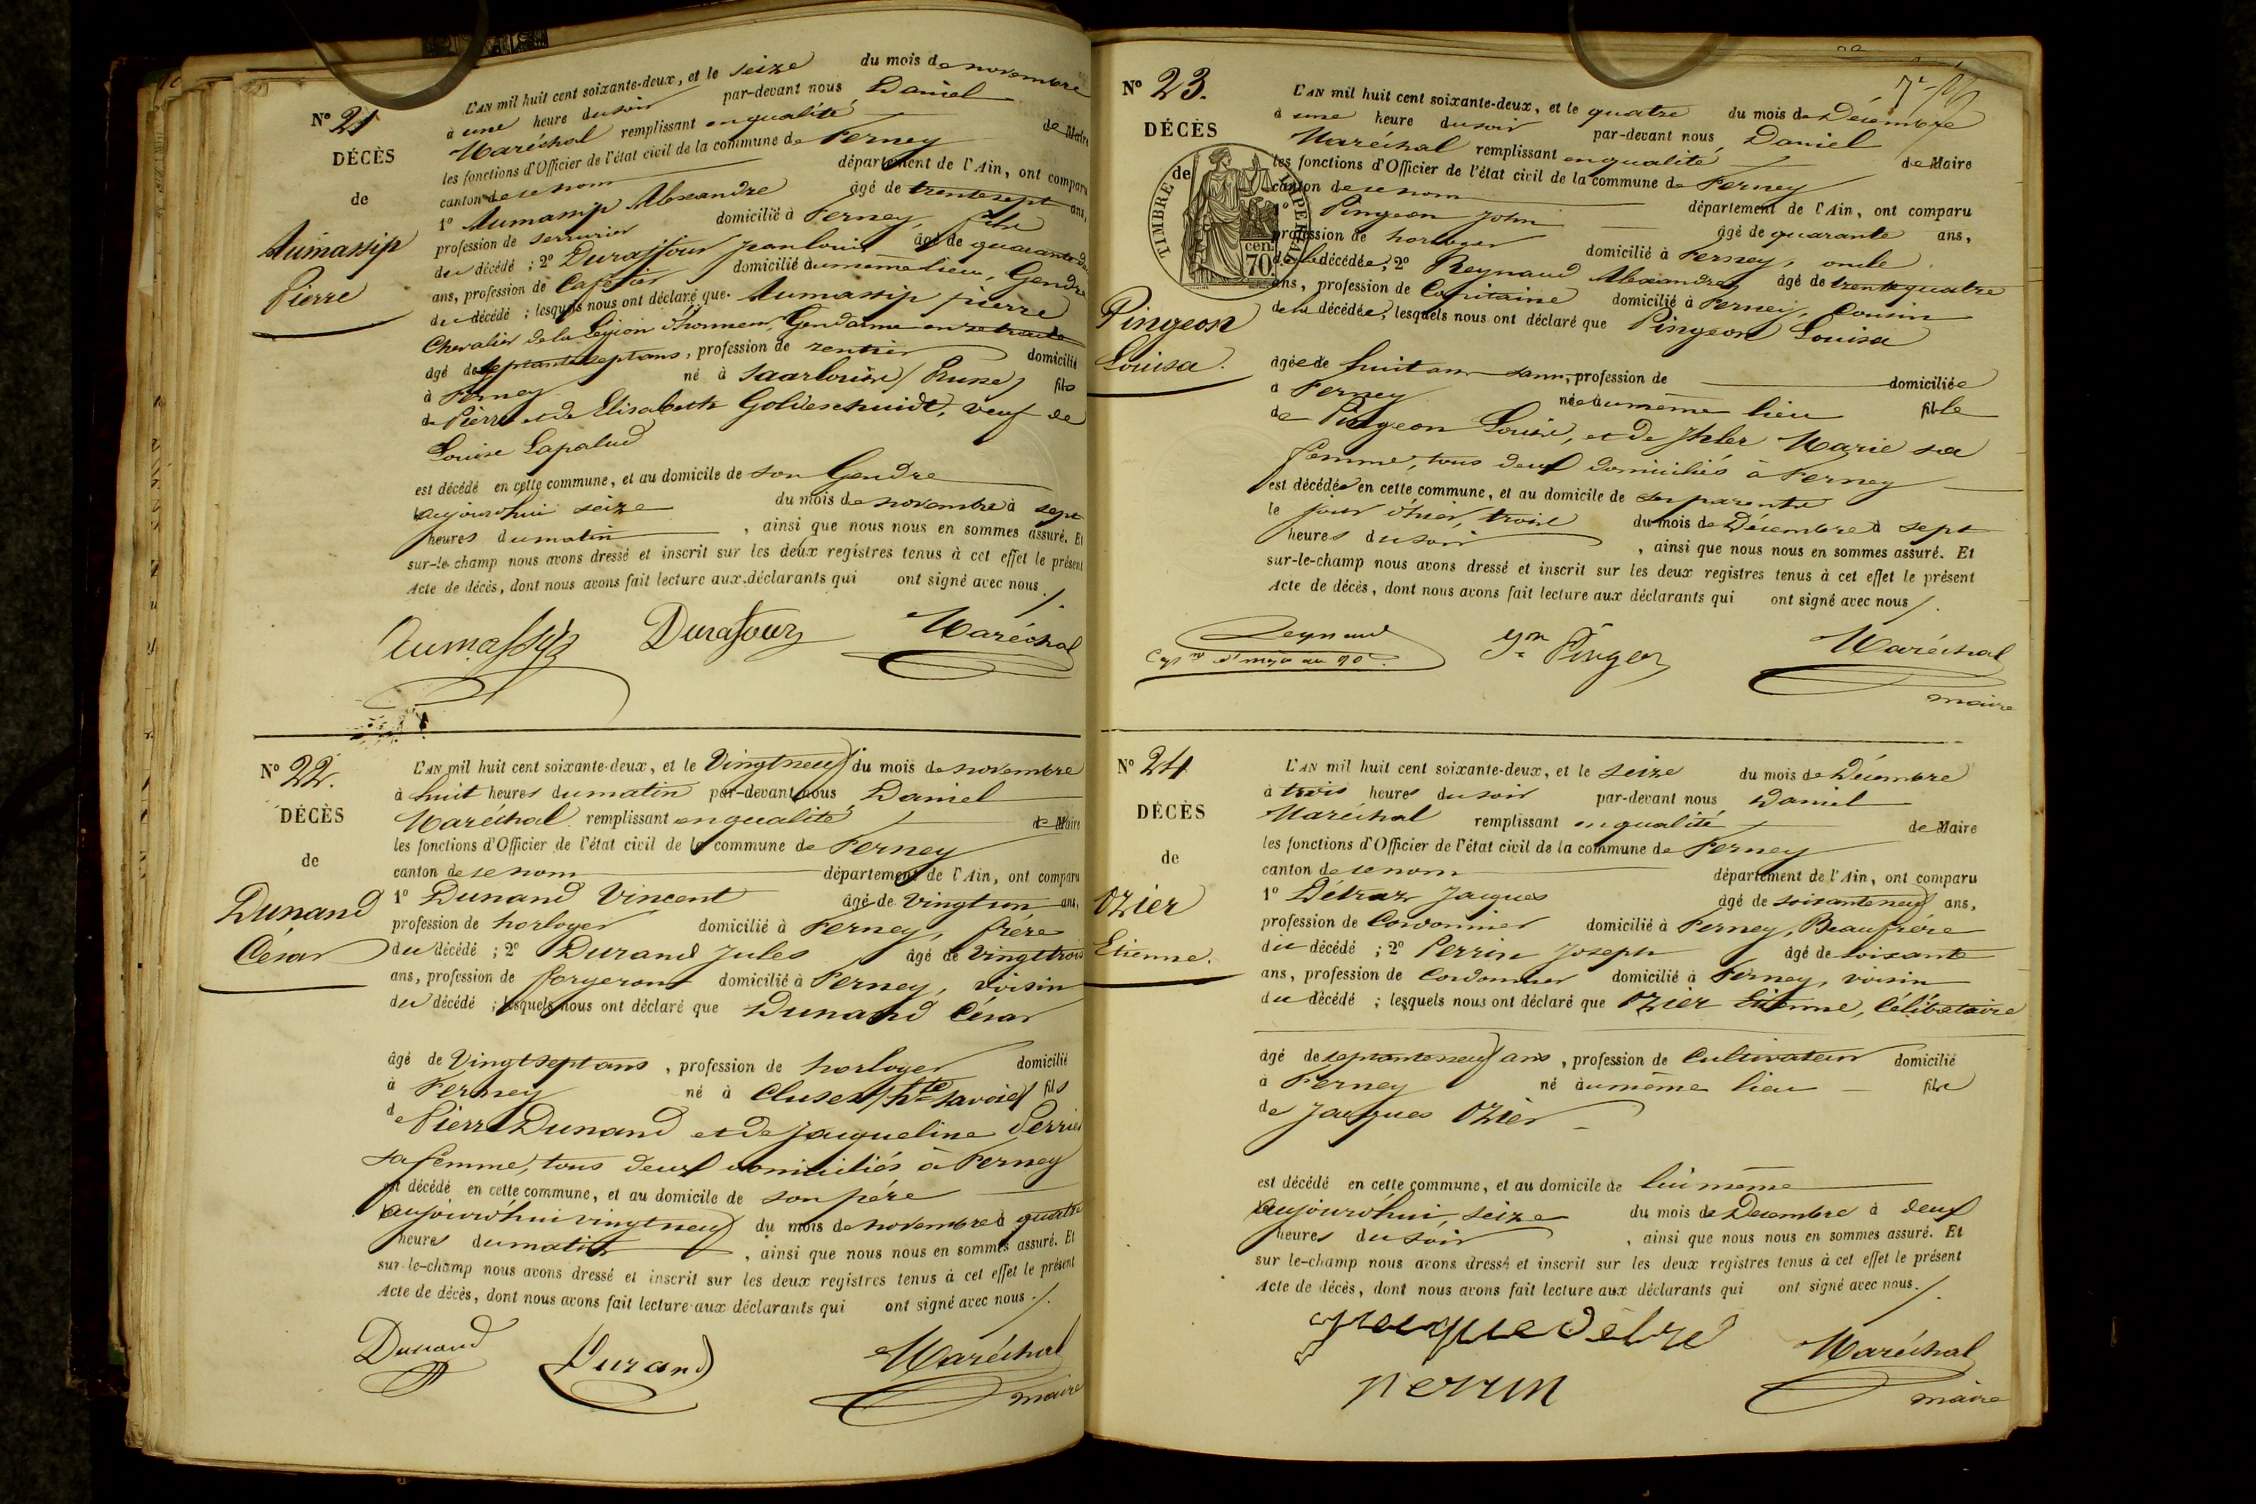 N° 21
DÉCÈS
de
Aumassip
Pierre
L'AN mil huit cent soixante-deux, et le seize du mois de novembre
à une heure du soir par-devant nous Daniel
Maréchal remplissant en qualité de Maire
les fonctions d'Officier de l'état civil de la commune de Ferney
canton de ce nom département de l'Ain, ont comparu
1° Aumassip Alexandre âgé de trente sept ans,
profession de serrurier domicilié à Ferney, fils
du décédé ; 2° Durafour Jean louis âgé de quarante
ans, profession de Cafetier domicilié au même lieu, Gendre
du décédé ; lesquels nous ont déclaré que Aumassip pierre
Chevalier de la Légion d'honneur, Gendarme en retraite
âgé de septante sept ans, profession de rentier domicilié
à Ferney né à Saarlouis (Prusse) fils
de Pierre et de Elisabeth Goldeschmidt, veuf de
Louise Lapalud
est décédé en cette commune, et au domicile de son Gendre
aujourd'hui seize du mois de novembre à sept
heures du matin , ainsi que nous nous en sommes assuré. Et
sur-le-champ nous avons dressé et inscrit sur les deux registres tenus à cet effet le présent
Acte de décès, dont nous avons fait lecture aux déclarants qui ont signé avec nous.
Aumassip Durafour Maréchal
N° 22.
DÉCÈS
de
Dunand
César
L'AN mil huit cent soixante-deux, et le Vingt neuf du mois de novembre
à huit heures du matin par-devant nous Daniel
Maréchal remplissant en qualité de Maire
les fonctions d'Officier de l'état civil de la commune de Ferney
canton de ce nom département de l'Ain, ont comparu
1° Dunand Vincent âgé de Vingt un ans,
profession de horloger domicilié à Ferney, frère
du décédé ; 2° Durand Jules âgé de Vingt trois
ans, profession de forgeron domicilié à Ferney, voisin
du décédé ; lesquels nous ont déclaré que Dunand César
âgé de Vingt sept ans, profession de horloger domicilié
à Ferney né à Cluses (hte savoie) fils
de Pierre Dunand et de Jacqueline Perrier
sa femme, tous deux domiciliés à Ferney
est décédé en cette commune, et au domicile de son père
aujourd'hui vingt neuf du mois de novembre à quatre
heures du matin , ainsi que nous nous en sommes assuré. Et
sur-le-champ nous avons dressé et inscrit sur les deux registres tenus à cet effet le présent
Acte de décès, dont nous avons fait lecture aux déclarants qui ont signé avec nous.
Dunand Durand Maréchal
maire
N° 23.
DÉCÈS
de
TIMBRE IMPÉRIAL
70 cen.
Pingeon
Louisa.
L'AN mil huit cent soixante-deux, et le quatre du mois de Décembre
à une heure du soir par-devant nous Daniel
Maréchal remplissant en qualité de Maire
les fonctions d'Officier de l'état civil de la commune de Ferney
canton de ce nom département de l'Ain, ont comparu
1° Pingeon John âgé de quarante ans,
profession de horloger domicilié à Ferney, oncle
de la décédée, 2° Reynaud Alexandre âgé de trente quatre
ans, profession de Capitaine domicilié à Ferney, Cousin
de la décédée, lesquels nous ont déclaré que Pingeon Louisa
âgée de huit ans sans, profession de domiciliée
à Ferney née au même lieu fille
de Pingeon Louis, et de Marie sa
femme, tous deux domiciliés à Ferney
est décédée en cette commune, et au domicile de ses parents
le jour d'hier, trois du mois de Décembre à sept
heures du soir , ainsi que nous nous en sommes assuré. Et
sur-le-champ nous avons dressé et inscrit sur les deux registres tenus à cet effet le présent
Acte de décès, dont nous avons fait lecture aux déclarants qui ont signé avec nous.
Reynaud Jn Pingeon Maréchal
maire
N° 24
DÉCÈS
de
Ozier
Etienne.
L'AN mil huit cent soixante-deux, et le seize du mois de Décembre
à trois heures du soir par-devant nous Daniel
Maréchal remplissant en qualité de Maire
les fonctions d'Officier de l'état civil de la commune de Ferney
canton de ce nom département de l'Ain, ont comparu
1° Détraz Jacques âgé de soixante neuf ans,
profession de Cordonnier domicilié à Ferney, Beaufrère
du décédé ; 2° Perrin Joseph âgé de soixante
ans, profession de Cordonnier domicilié à Ferney, voisin
du décédé ; lesquels nous ont déclaré que Ozier Etienne, Célibataire
âgé de septante neuf ans, profession de Cultivateur domicilié
à Ferney né au même lieu fils
de Jacques Ozier
est décédé en cette commune, et au domicile de lui même
aujourd'hui, seize du mois de Décembre à deux
heures du soir , ainsi que nous nous en sommes assuré. Et
sur le-champ nous avons dressé et inscrit sur les deux registres tenus à cet effet le présent
Acte de décès, dont nous avons fait lecture aux déclarants qui ont signé avec nous.
Maréchal
perrin maire